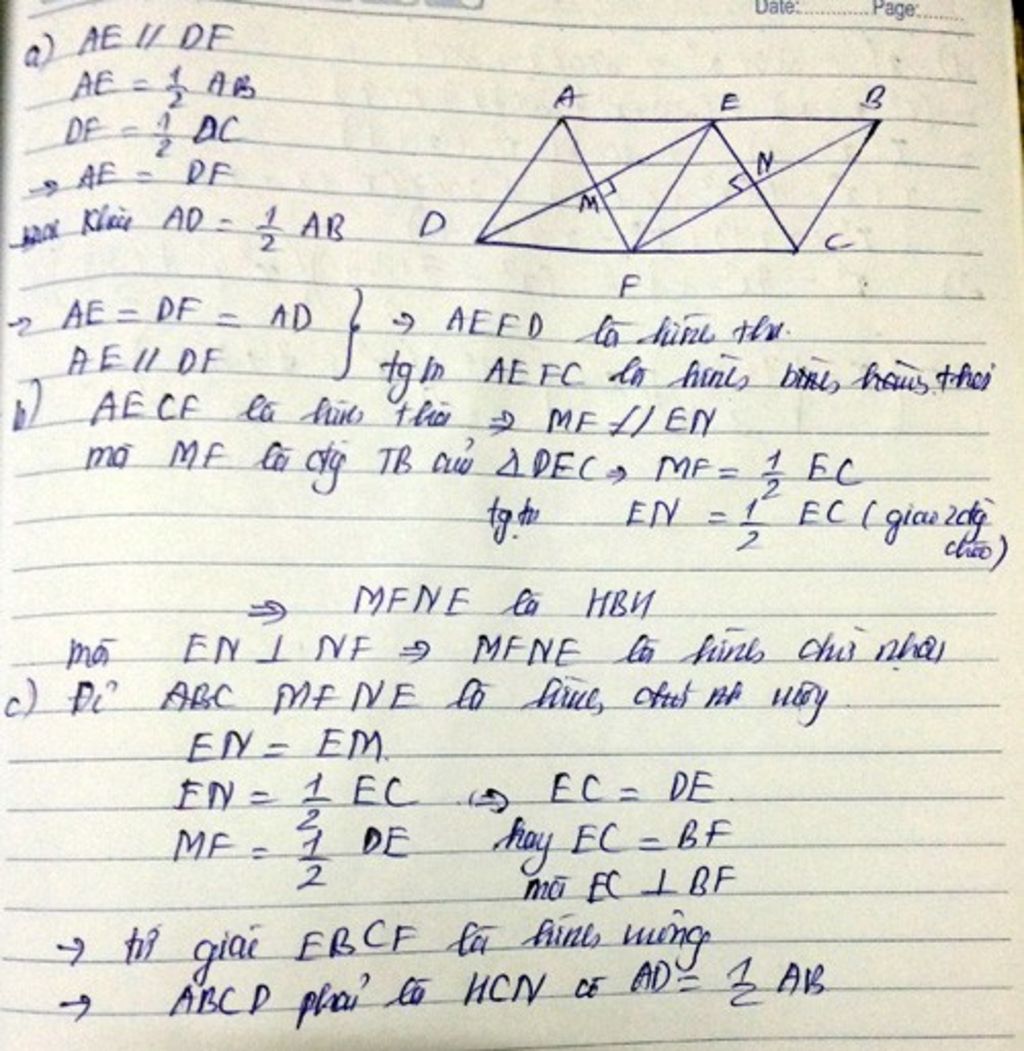 Date:............ Page:.......
a) AE // DF
AE = 1/2 AB
DF = 1/2 DC
→ AE = DF
Khác AD = 1/2 AB
A E B
M N
D F C
→ AE = DF = AD } → AEFD là hình thoi
AE // DF
tg tự AEFC là hình thoi
b) AECF là hình thoi ⇒ MF // EN
mà MF là đg TB của △DEC → MF = 1/2 EC
tg tự EN = 1/2 EC (giao 2 đg chéo)
⇒ MFNE là HBH
mà EN ⊥ NF ⇒ MFNE là hình chữ nhật
c) Để ABC MFNE là hình vuông
EN = EM
EN = 1/2 EC ⇒ EC = DE
MF = 1/2 DE hay EC = BF
mà EC ⊥ BF
→ tứ giác EBCF là hình vuông
→ ABCD phải là HCN có AD = 1/2 AB